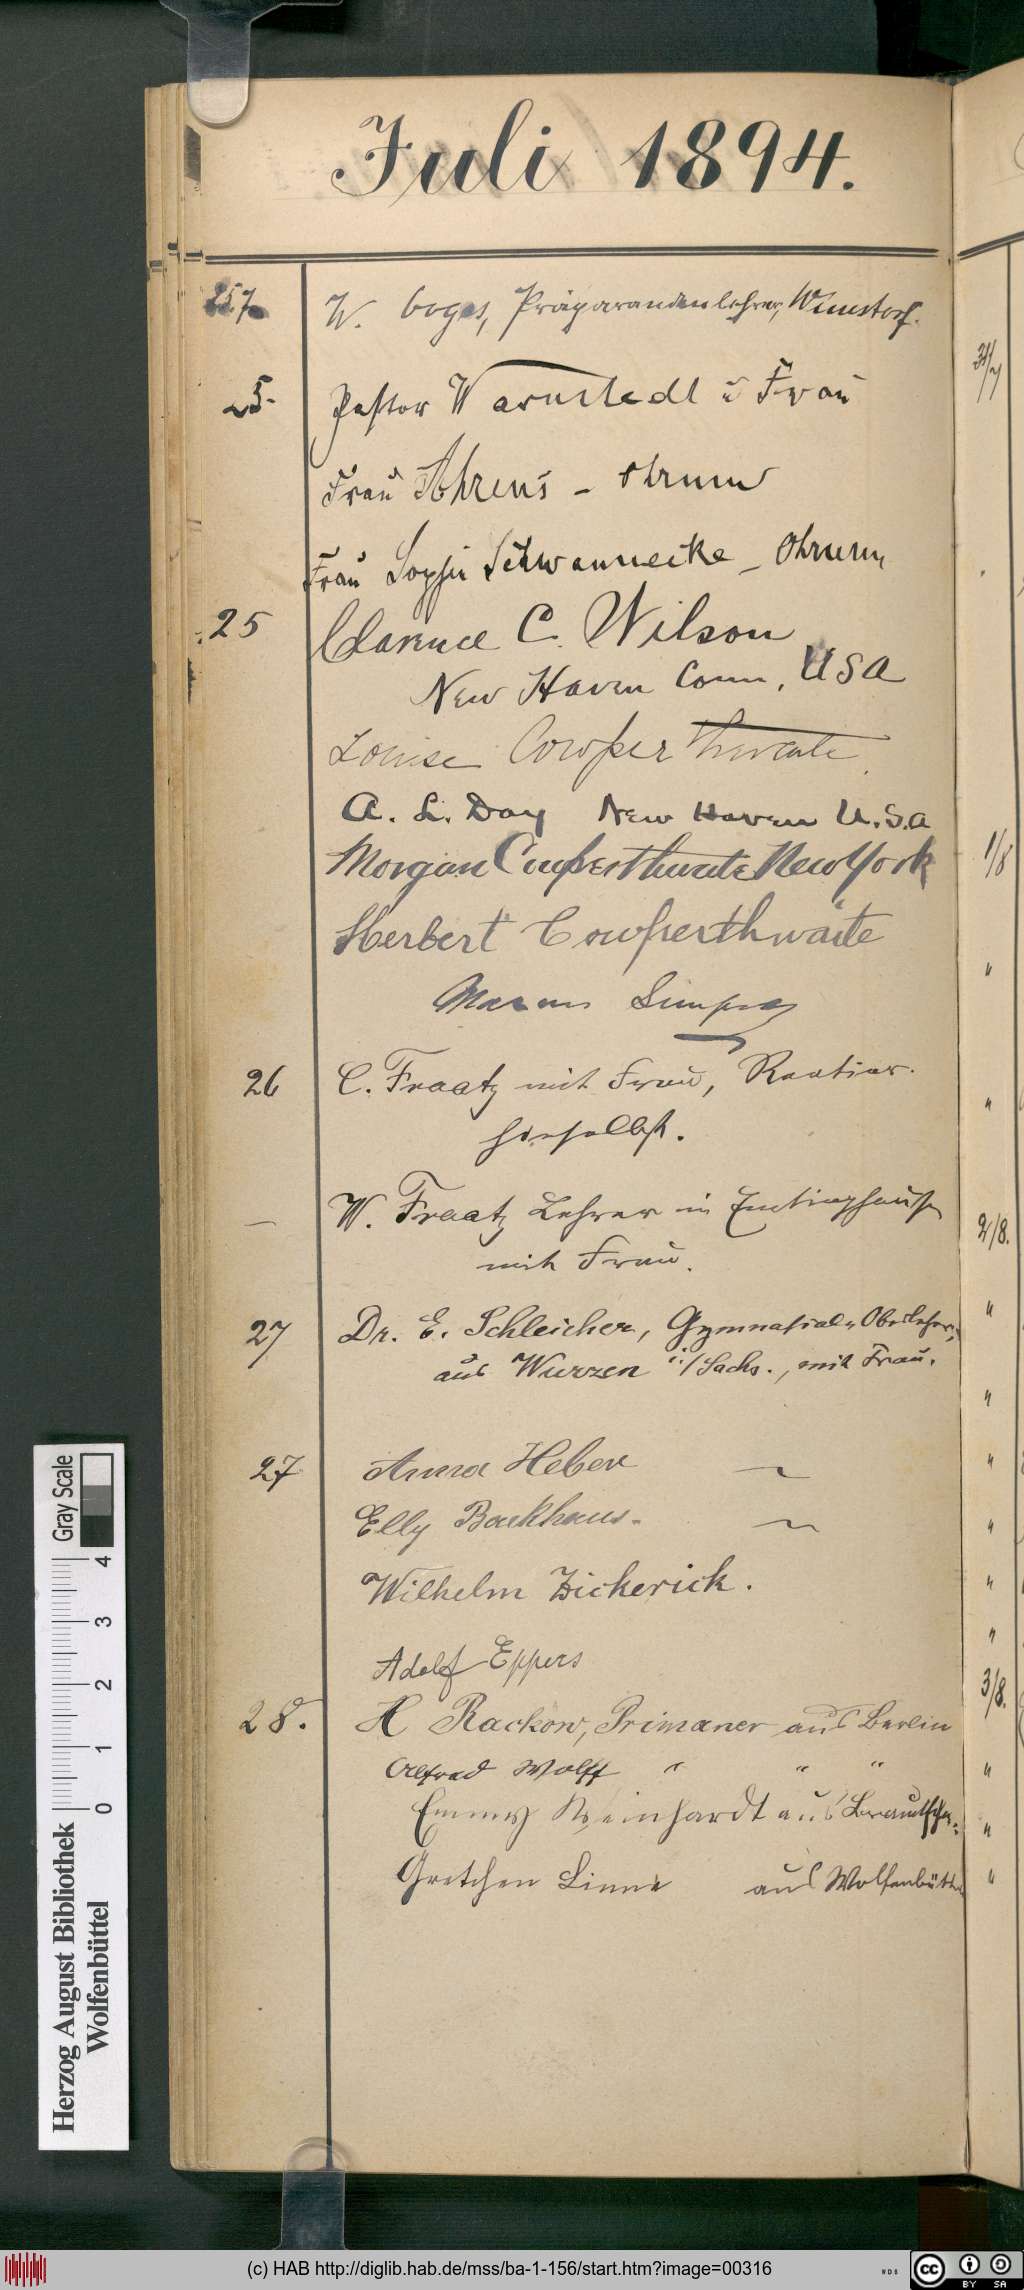 Juli 1894.
25.7 W. Voges, Präparandenlehrer, Wunstorf.
25. Pastor Warnstedt u Frau
Frau Ahrens - Ohrum
Frau Sophie Schwannecke - Ohrum
25 Clarence C. Wilson
New Haven Conn, USA
Louise Cowperthwaite
A. L. Day New Haven U.S.A
Morgan Cowperthwaite New York
Herbert Cowperthwaite
Simpson
26 C. Fraatz mit Frau, Rentier.
hieselbst.
— W. Fraatz Lehrer in
mit Frau.
27 Dr. E. Schleicher, Gymnasial-Oberlehrer,
aus Wurzen i/Sachs., mit Frau.
27 Anna Heber ~
Elly Backhaus. ~
Wilhelm Zickerick.
Adolf Eppers
28. H Rackow, Primaner aus Berlin
Alfred Wolff " " "
Emmy Weinhardt aus
Gretchen Linne aus Wolfenbütt
31/7
1/8
"
"
2/8.
"
"
"
"
"
"
3/8.
"
"
"
Herzog August Bibliothek
Wolfenbüttel
0 1 2 3 4
Gray Scale
(c) HAB http://diglib.hab.de/mss/ba-1-156/start.htm?image=00316
WDB
cc BY SA